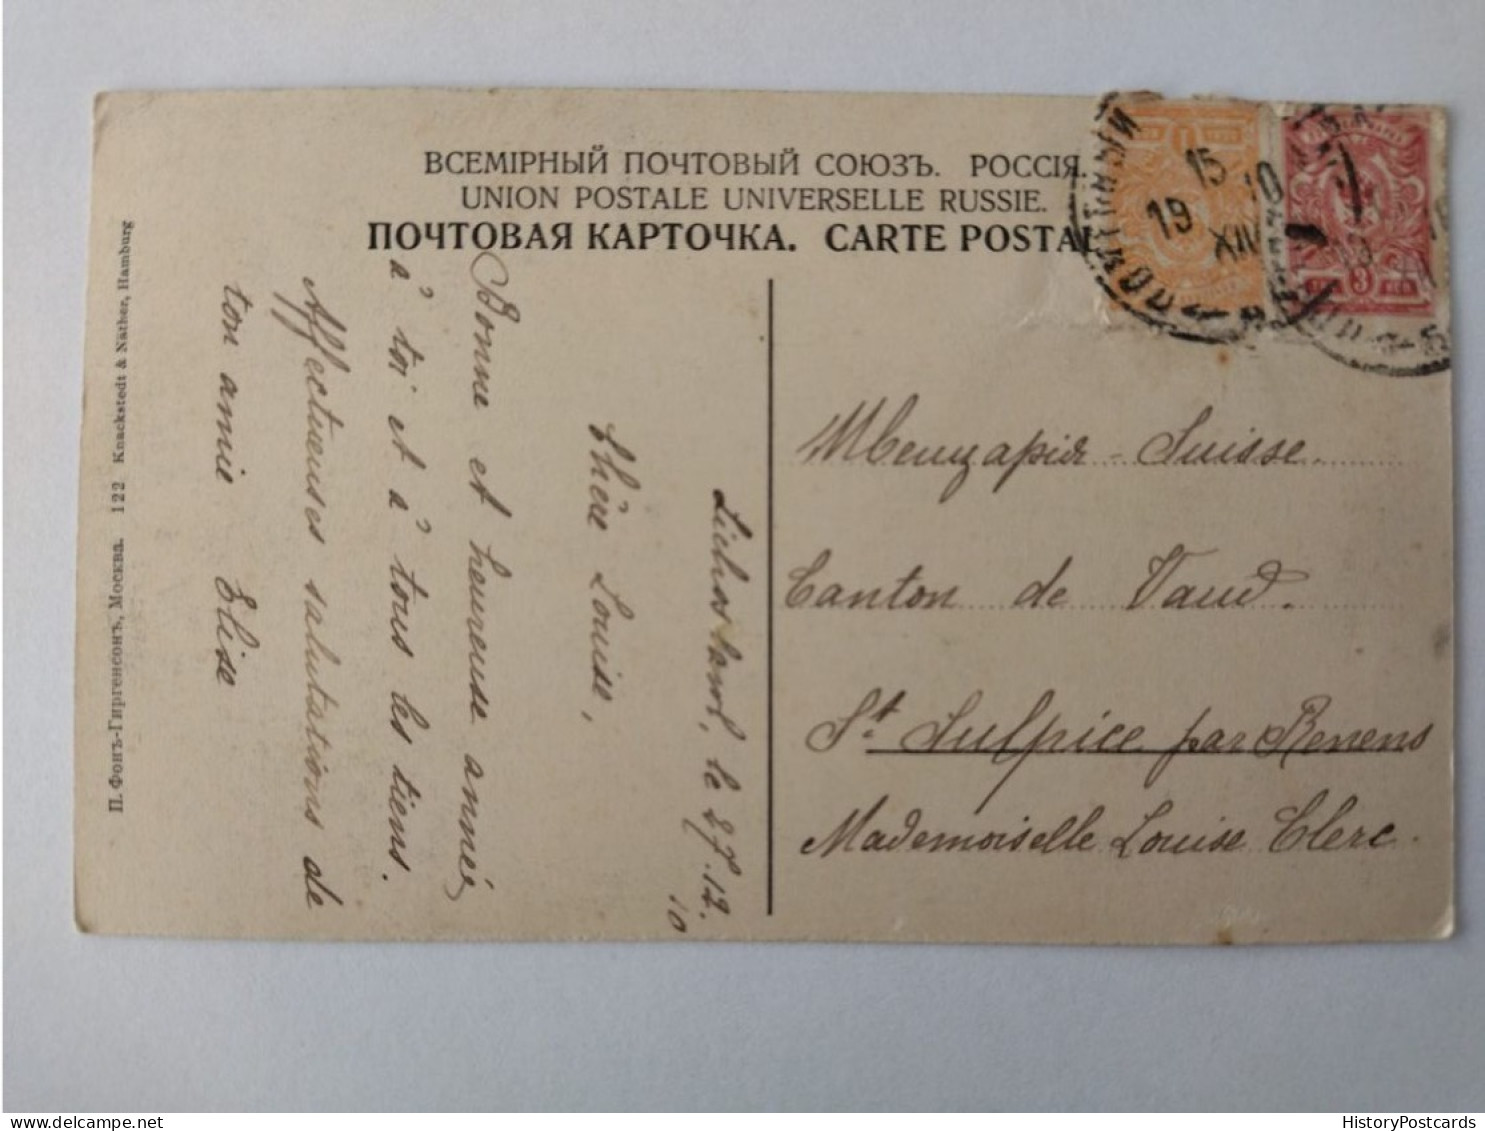 ВСЕМІРНЫЙ ПОЧТОВЫЙ СОЮЗЪ. РОССІЯ.
UNION POSTALE UNIVERSELLE RUSSIE.
ПОЧТОВАЯ КАРТОЧКА. CARTE POSTAL
П. Фонъ-Гиргенсонъ, Москва. 122 Knackstedt & Näther, Hamburg
le 27.12.
10
Chère Louise,
Bonne et heureuse année
à toi et à tous les tiens.
Affectueuses salutations de
ton amie Elise
15 10
19 XII
1
3
Швейцарія - Suisse.
Canton de Vaud.
St. Sulpice par Renens
Mademoiselle Louise Clerc.
HistoryPostcards